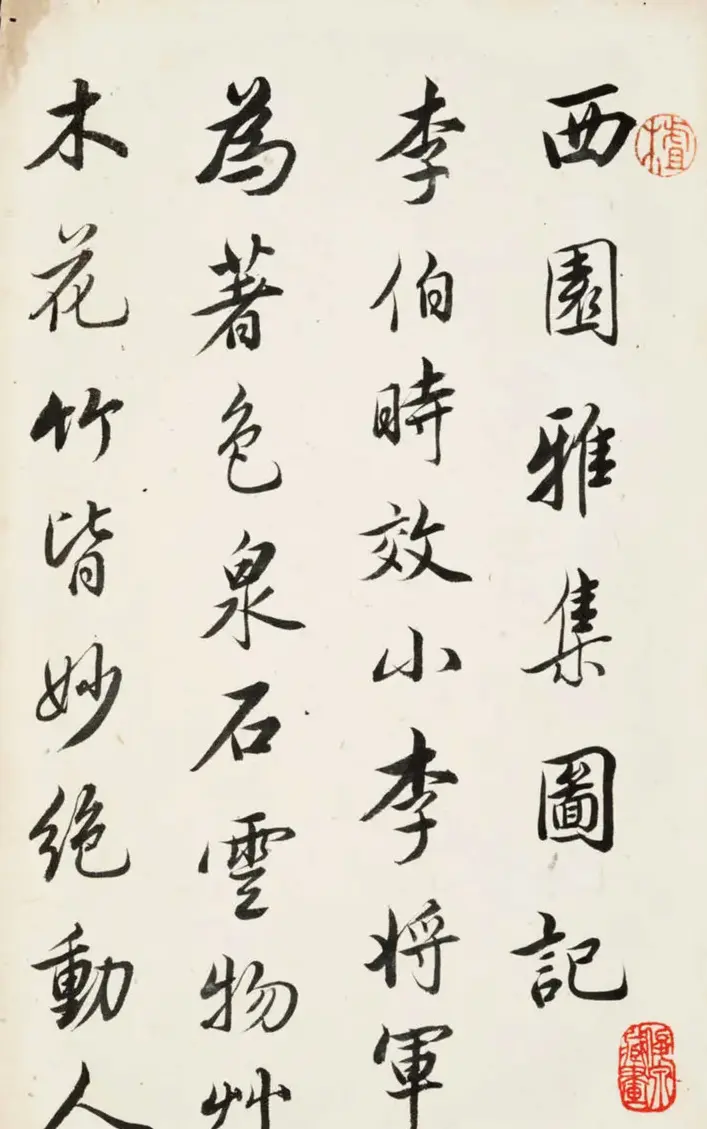 西園雅集圖記
李伯時效小李將軍
為著色泉石雲物艸
木花竹皆妙絕動人